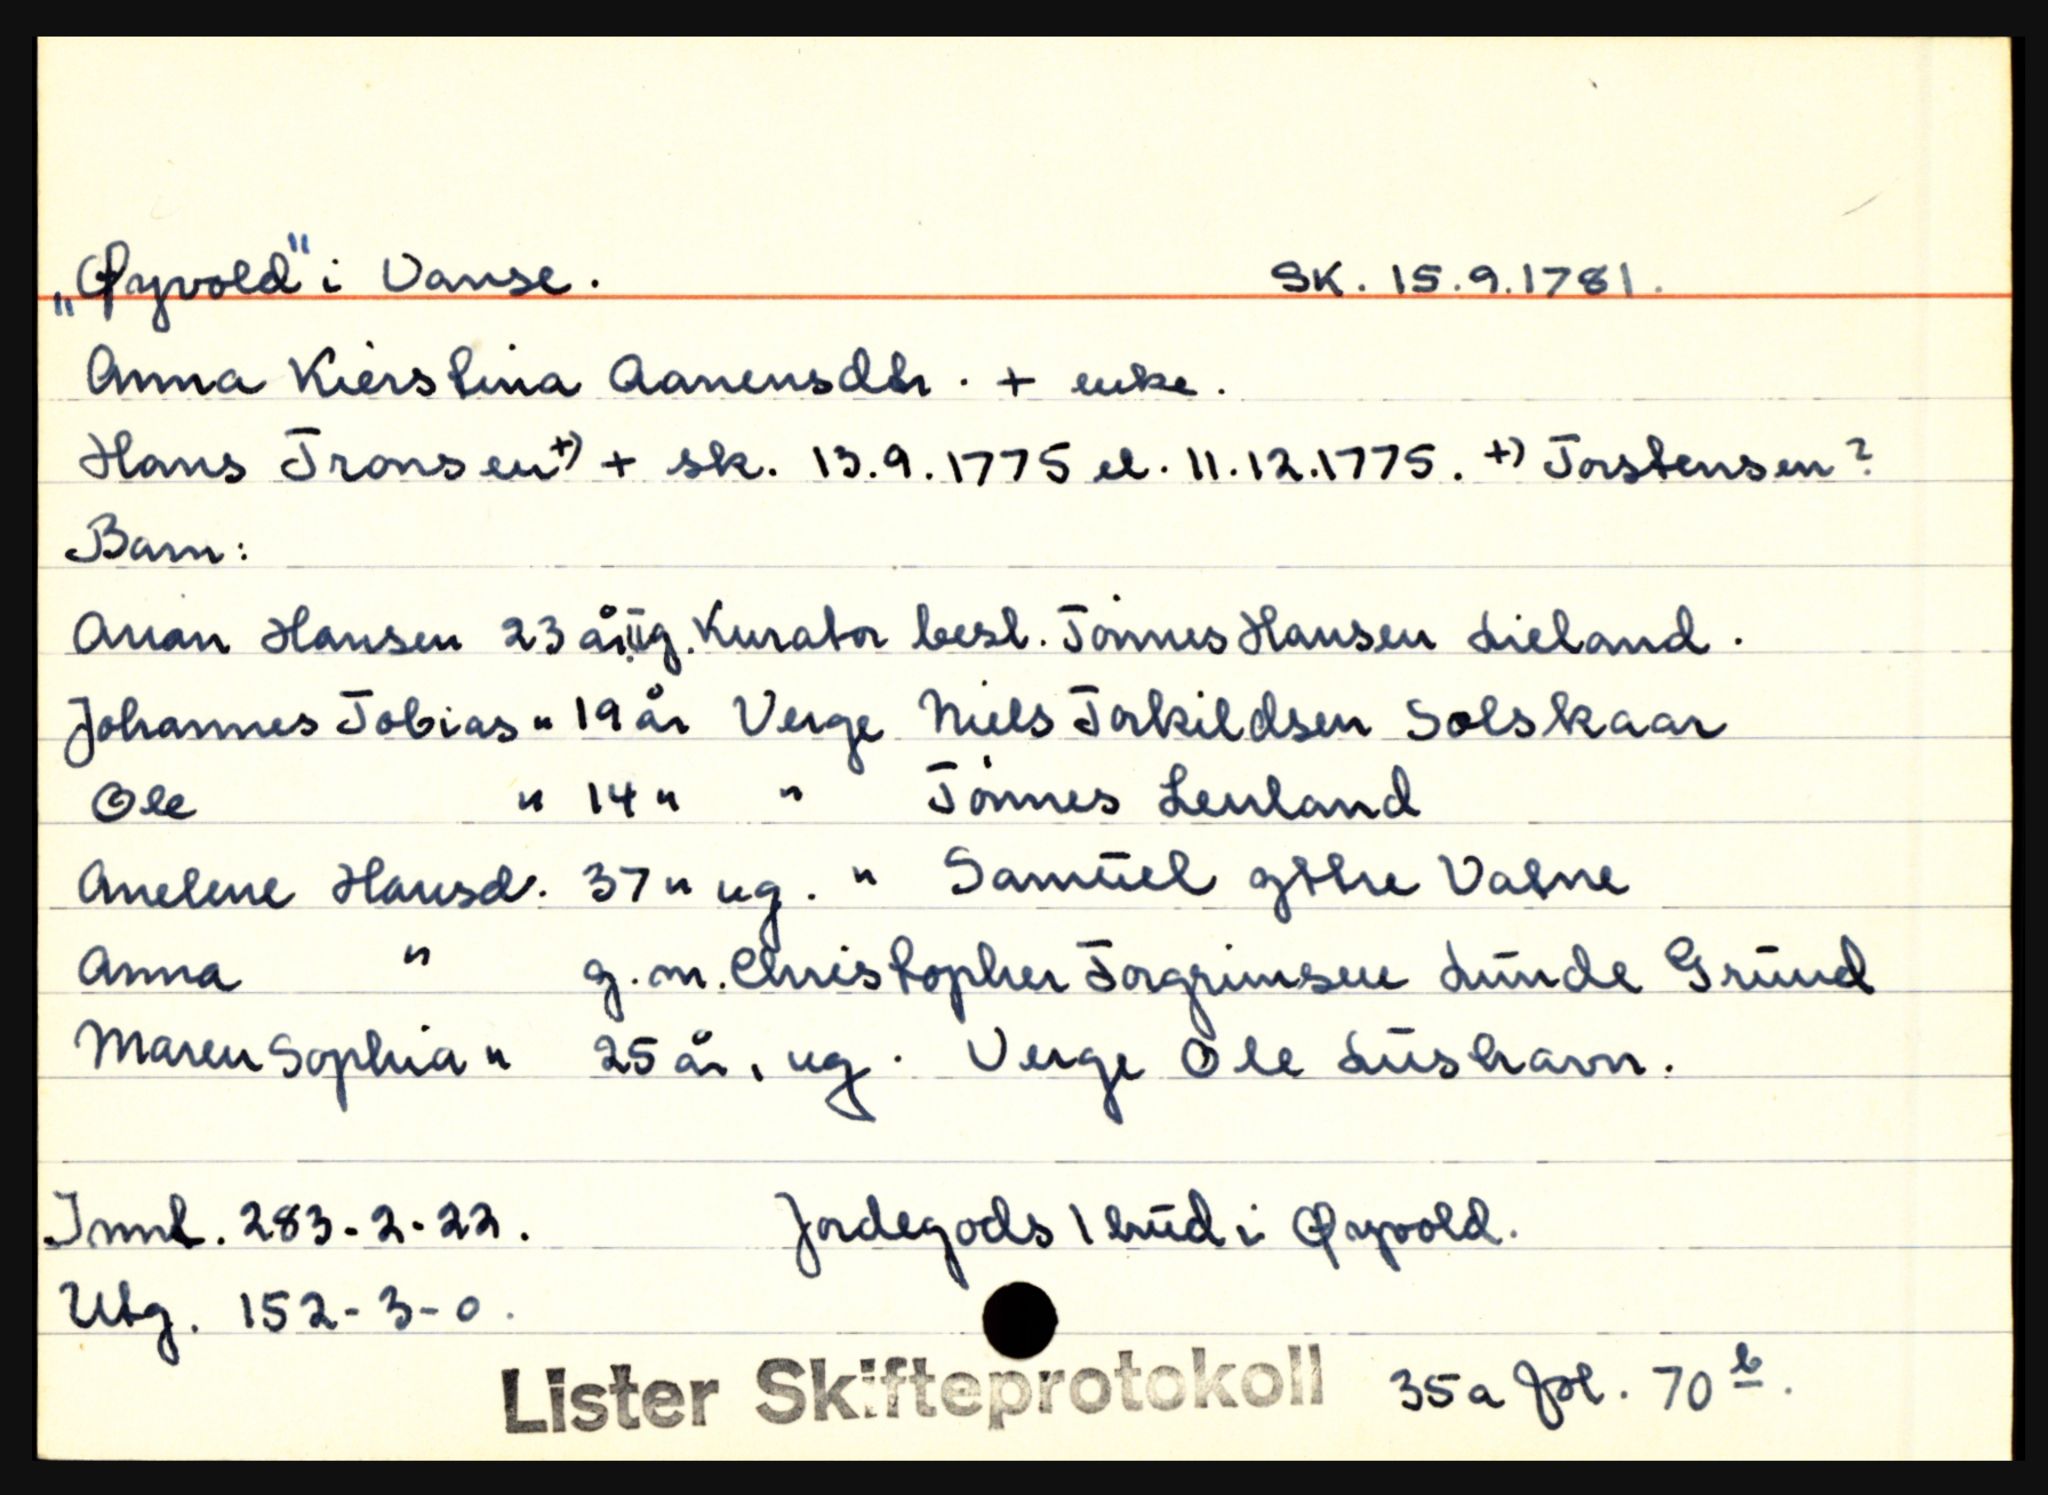 „Øyvold" i Vanse. SK. 15.9.1781.
Anna Kierstina Aanensdtr. + enke.
Hans Tronsen +) + sk. 13.9.1775 el. 11.12.1775. +) Torstensen?
Barn:
Anan Hansen 23 år, ūg. Kurator besl. Tönnes Hansen Lieland.
Johannes Tobias " 19 år Verge Niels Torkildsen Solskaar
Ole " 14 " " Tönnes Leuland
Anelene Hansd. 37 " ug. " Samūel gttre Vatne
Anna " g. m. Christopher Torgrimsen Lūnde Grūnd
Maren Sophia " 25 år, ug. Verge Ole Lūshavn.
Innt. 283-2-22. Jordegods 1 hūd i Øyvold.
Utg. 152-3-0.
Lister Skifteprotokoll 35a fol. 70 b.